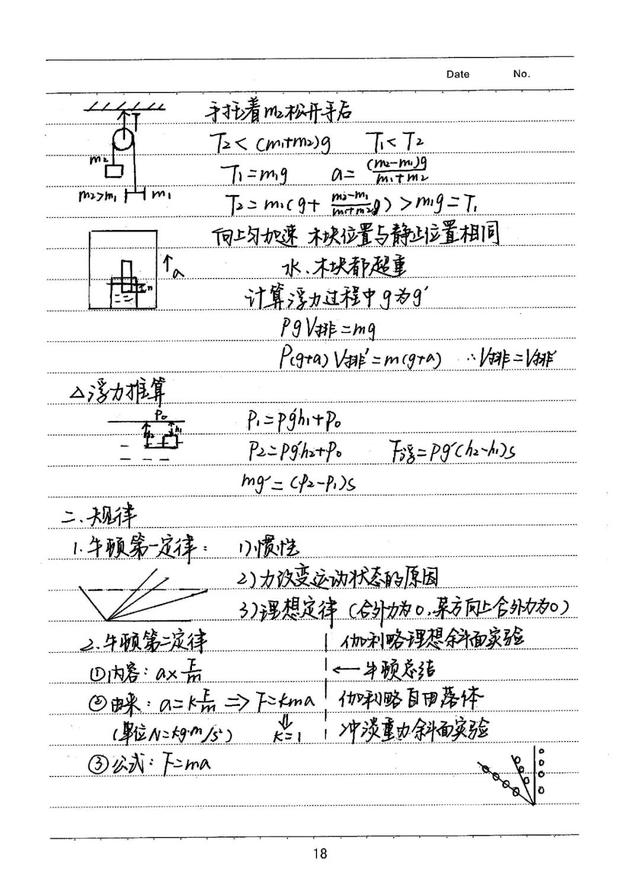 Date No.
手托着m2松开手后
T
T2<(m1+m2)g T1<T2
m2
T1=m1g a=(m2-m1)g/m1+m2
m2>m1 m1
T2=m1(g+m2-m1/m1+m2 g)>m1g=T1
向上匀加速 木块位置与静止位置相同
a
水、木块都超重
计算浮力过程中g为g'
ρgV排=mg
ρ(g+a)V排'=m(g+a) ∴V排=V排'
△浮力推算
P0
h2 h1
P1=ρg'h1+P0
P2=ρg'h2+P0 F浮=ρg'(h2-h1)s
mg'=(P2-P1)s
二、规律
1.牛顿第一定律: 1)惯性
2)力改变运动状态的原因
3)理想定律(合外力为0,某方向上合外力为0)
2.牛顿第二定律 伽利略理想斜面实验
①内容:a∝F/m ← 牛顿总结
②由来:a=kF/m ⇒ F=kma 伽利略自由落体
(单位N=kg·m/s²) ⇓ k=1 冲淡重力斜面实验
③公式:F=ma
18